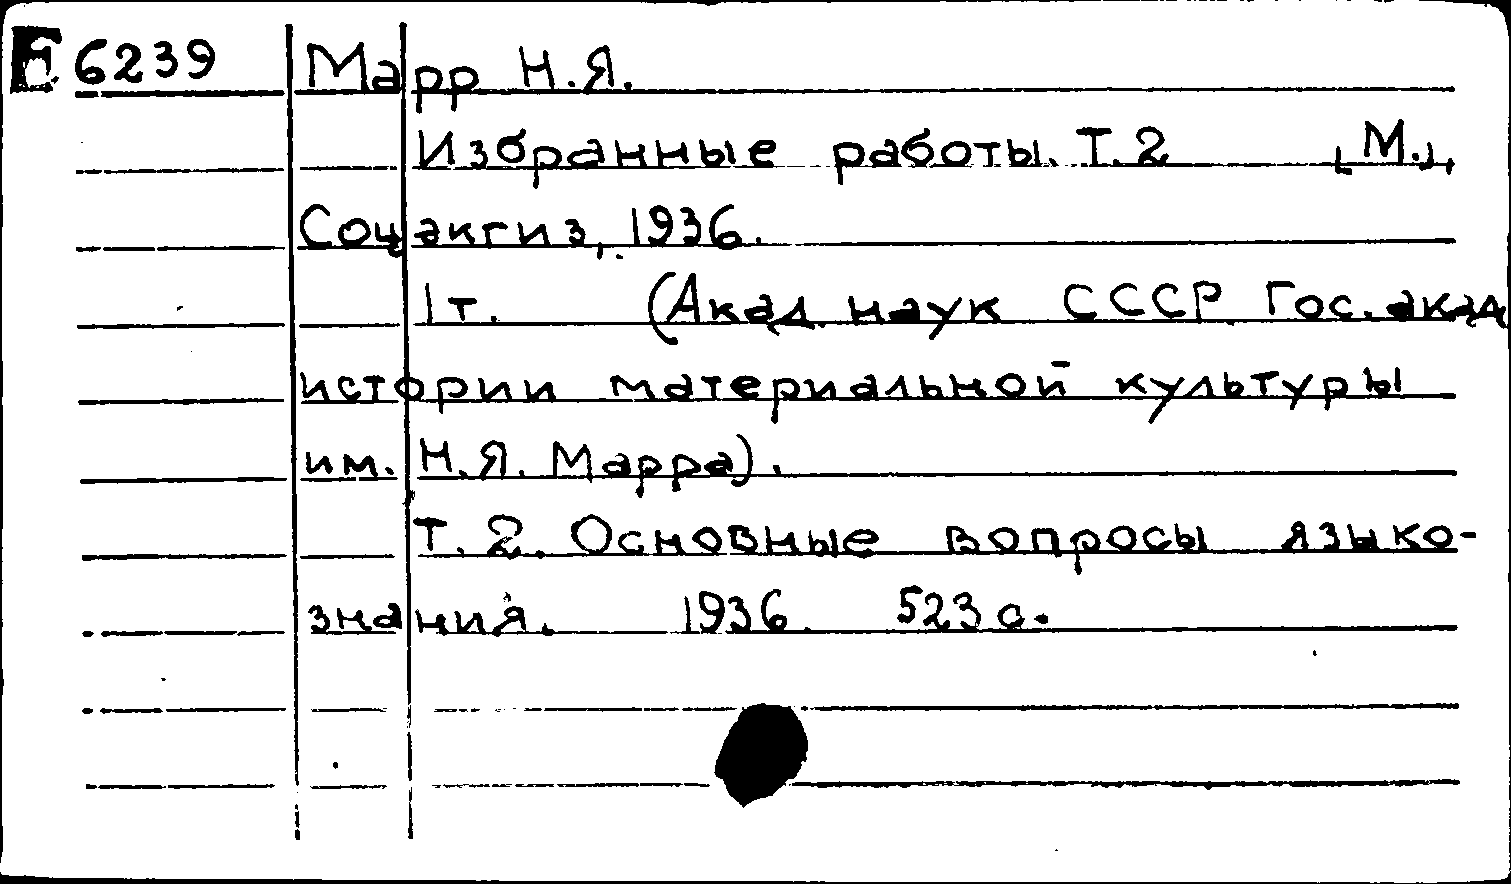 6239 Марр Н.Я.
Избранные работы. Т.2 [М.],
Соцэкгиз, 1936.
1 т. (Акад. наук СССР Гос. акад
истории материальной культуры
им. Н.Я. Марра).
Т. 2. Основные вопросы языко-
знания. 1936. 523 с.